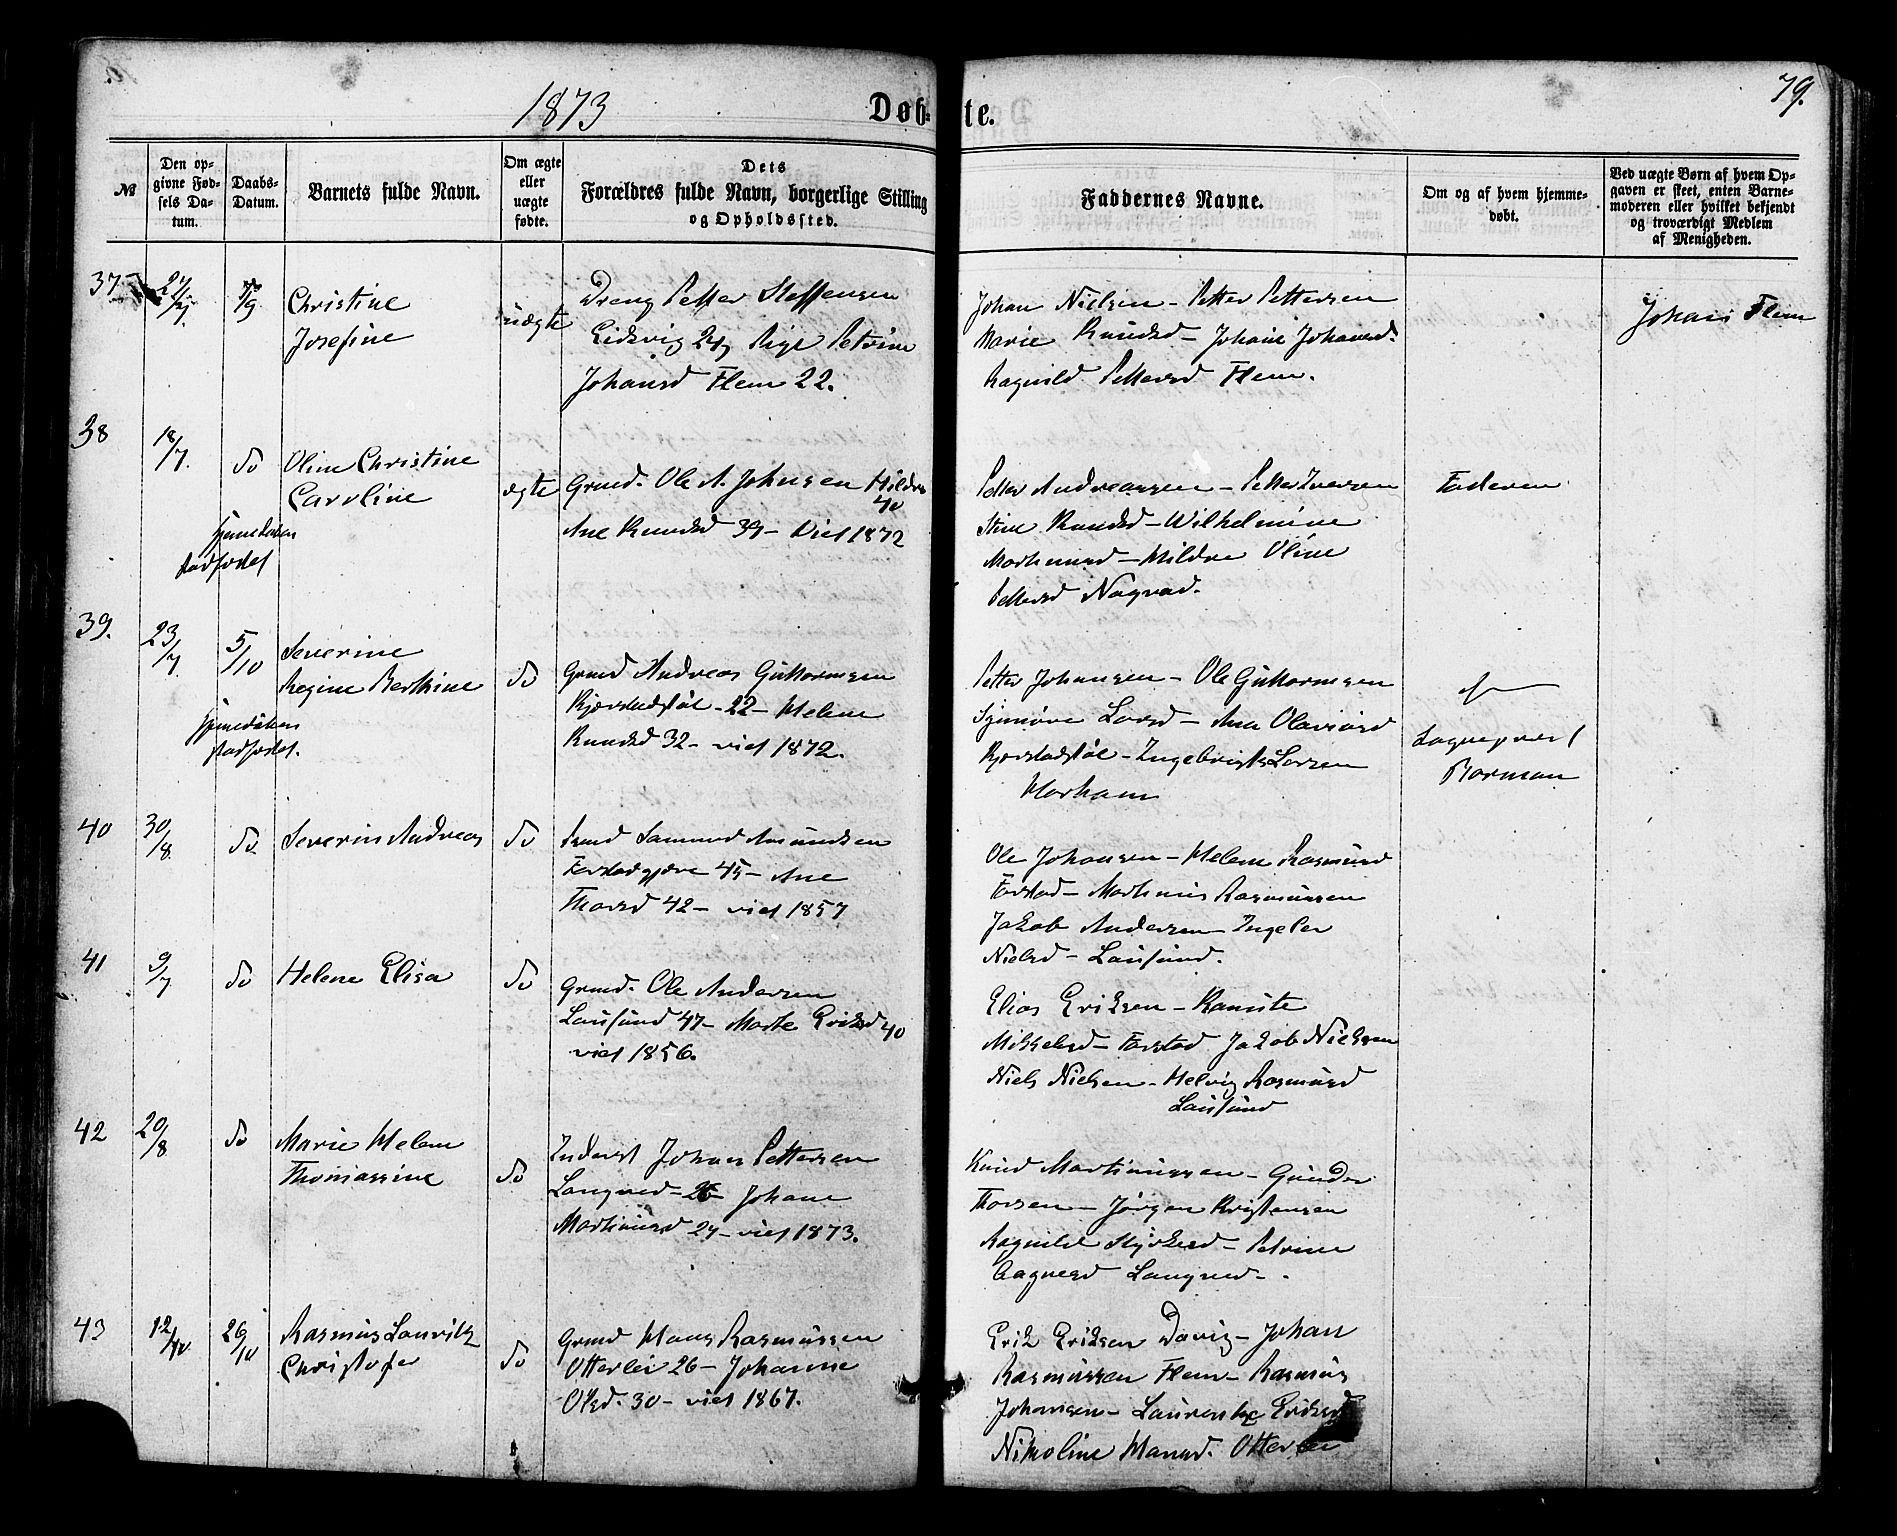 1873
Døb-
te.
79.
№
Den op-
givne Fød-
sels Da-
tum.
Daabs-
Datum.
Barnets fulde Navn.
Om ægte
eller
uægte
fødte.
Dets
Forældres fulde Navn, borgerlige Stilling
og Opholdssted.
Faddernes Navne.
Om og af hvem hjemme-
døbt.
Ved uægte Børn af hvem Op-
gaven er skeet, enten Barne-
moderen eller hvilket bekjendt
og troværdigt Medlem
af Menigheden.
37
Christine
Josefine
uægte
Dreng Petter Steffensen
Eidsvig 24, Pige Petrine
Johansd Flem 22.
Johan Nielsen - Petter Pettersen
Marie Knudsd - Johane Johansd.
Ragnild Pettersd Flem.
Johan Flem
38
18/7.
do
Oline Christine
Caroline
hjemmedaaben
stadfæstet
ægte
Grmd. Ole A. Johnsen Hildre
40
Ane Knudsd 39 - viet 1872
Petter Andreassen - Petter Iversen
Stine Knudsd - Wilhelmine
Marthinusd - Hildre Oline
Pettersd Nogvad.
Faderen
39.
23/7.
5/10
Severine
Regine Berthine
hjemmedåben
stadfæstet.
do
Grmd Andreas Guttormsen
Kjærstadstøl - 22 - Helene
Knudsd 32 - viet 1872.
Petter Johansen - Ole Guttormsen
Synnøve Larsd - Ane Olaviusd
Kjærstadstøl - Ingebrigt Larsen
Harham
af
Sognepræst
Borman
40
30/8.
do.
Severin Andreas
do
Grmd Samund Amundsen
Farstadgjære 45 - Ane
Thorsd 42 - viet 1857
Ole Johansen - Helene Rasmusd
Farstad - Marthinus Rasmussen
Jakob Andersen - Ingeler
Nielsd - Lausund.
41
9/7
do
Helene Elisa
do
Grmd. Ole Andersen
Lausund 47 - Marte Eriksd 40
viet 1856.
Elias Eriksen - Kanute
Mikkelsd - Farstad Jakob Nielsen
Niels Nielsen - Helvig Rasmusd
Lausund
42
20/8.
do
Marie Helene
Thomassine
do
Inderst Johan Pettersen
Longved - 26 - Johane
Martinusd 24 - viet 1873.
Knud Martinussen - Gunder
Thorsen - Jørgen Kristensen
Ragnild Styrkesd - Petrine
Aagnesd Longved -.
43
12/10.
26/10
Rasmus Lauritz
Christofer
do
Grmd Hans Rasmussen
Otterlei 26 - Johanne
Olsd. 30 - viet 1867.
Erik Eriksen Davig - Johan
Rasmussen Flem - Rasmus
Johansen - Laurentze Eriksd
Nikoline Hansd. Otterlei